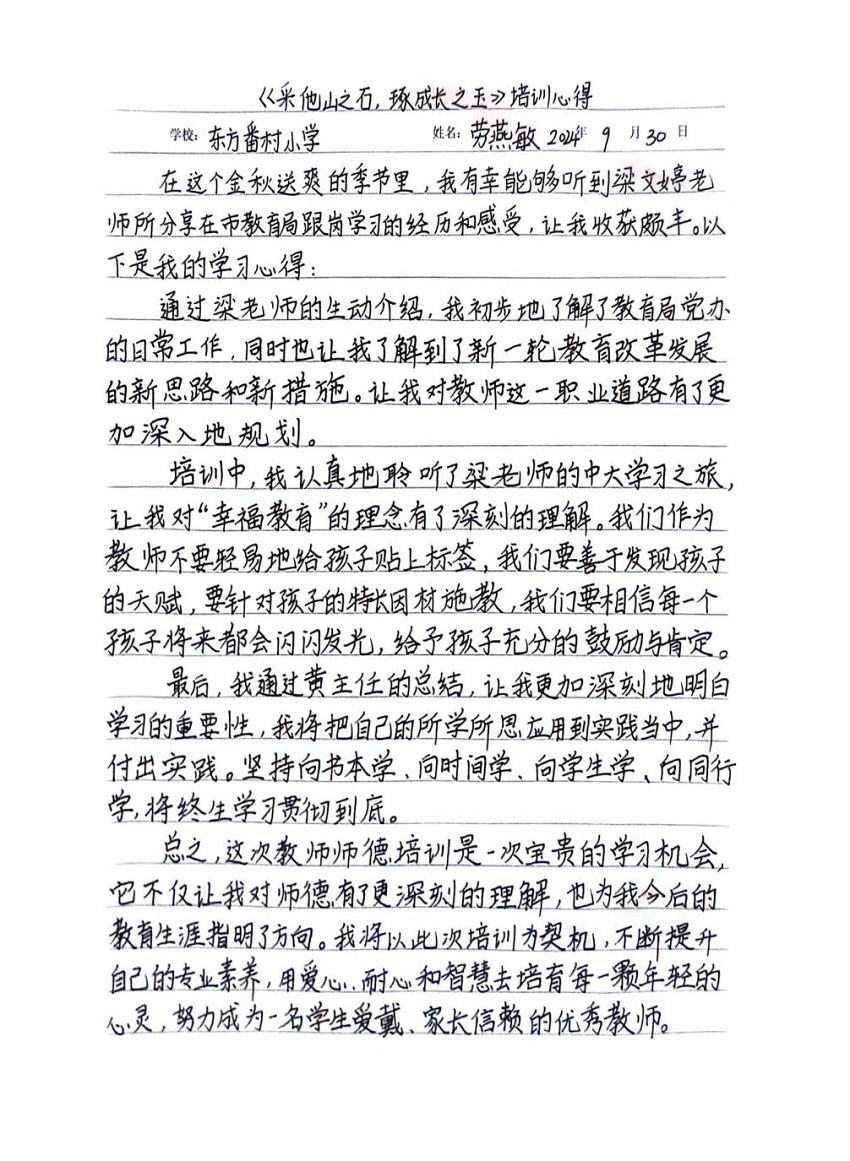 《采他山之石，琢成长之玉》培训心得
学校：东方番村小学 姓名：劳燕敏 2024年9月30日
在这个金秋送爽的季节里，我有幸能够听到梁文婷老
师所分享在市教育局跟岗学习的经历和感受，让我收获颇丰。以
下是我的学习心得：
通过梁老师的生动介绍，我初步地了解了教育局党办
的日常工作，同时也让我了解到了新一轮教育改革发展
的新思路和新措施。让我对教师这一职业道路有了更
加深入地规划。
培训中，我认真地聆听了梁老师的中大学习之旅，
让我对“幸福教育”的理念有了深刻的理解。我们作为
教师不要轻易地给孩子贴上标签，我们要善于发现孩子
的天赋，要针对孩子的特长因材施教，我们要相信每一个
孩子将来都会闪闪发光，给予孩子充分的鼓励与肯定。
最后，我通过黄主任的总结，让我更加深刻地明白
学习的重要性，我将把自己的所学所思应用到实践当中，并
付出实践。坚持向书本学、向时间学、向学生学、向同行
学，将终生学习贯彻到底。
总之，这次教师师德培训是一次宝贵的学习机会，
它不仅让我对师德有了更深刻的理解，也为我今后的
教育生涯指明了方向。我将以此次培训为契机，不断提升
自己的专业素养，用爱心、耐心和智慧去培育每一颗年轻的
心灵，努力成为一名学生爱戴、家长信赖的优秀教师。